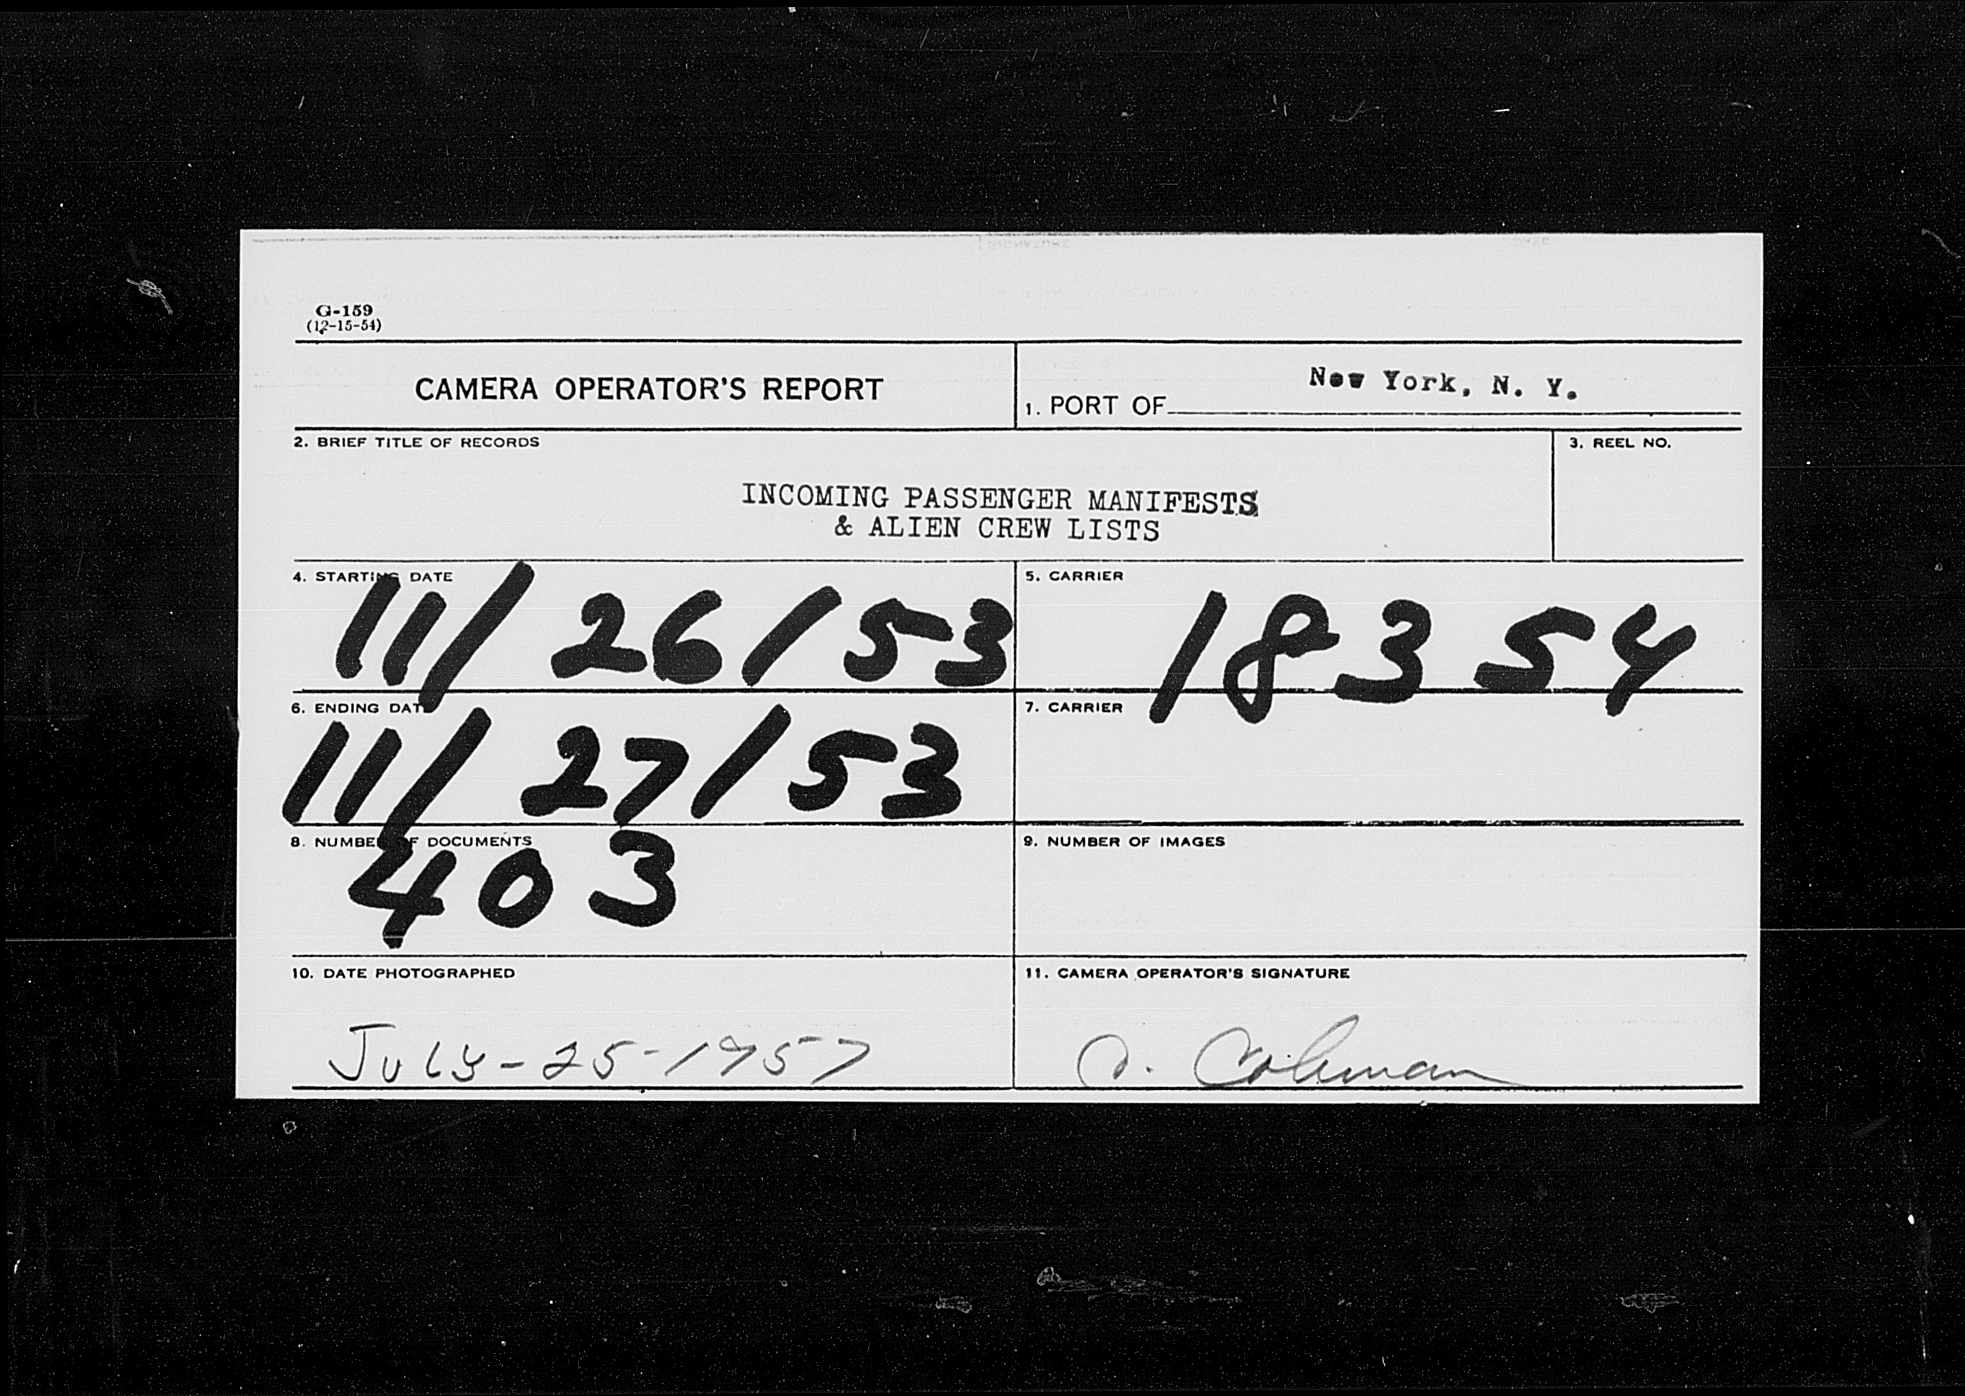 G-159
(12-15-54)
CAMERA OPERATOR'S REPORT
1. PORT OF New York, N. Y.
2. BRIEF TITLE OF RECORDS
3. REEL NO.
INCOMING PASSENGER MANIFESTS
& ALIEN CREW LISTS
4. STARTING DATE
11/26/53
5. CARRIER
18354
6. ENDING DATE
11/27/53
7. CARRIER
8. NUMBER OF DOCUMENTS
403
9. NUMBER OF IMAGES
10. DATE PHOTOGRAPHED
July-25-1957
11. CAMERA OPERATOR'S SIGNATURE